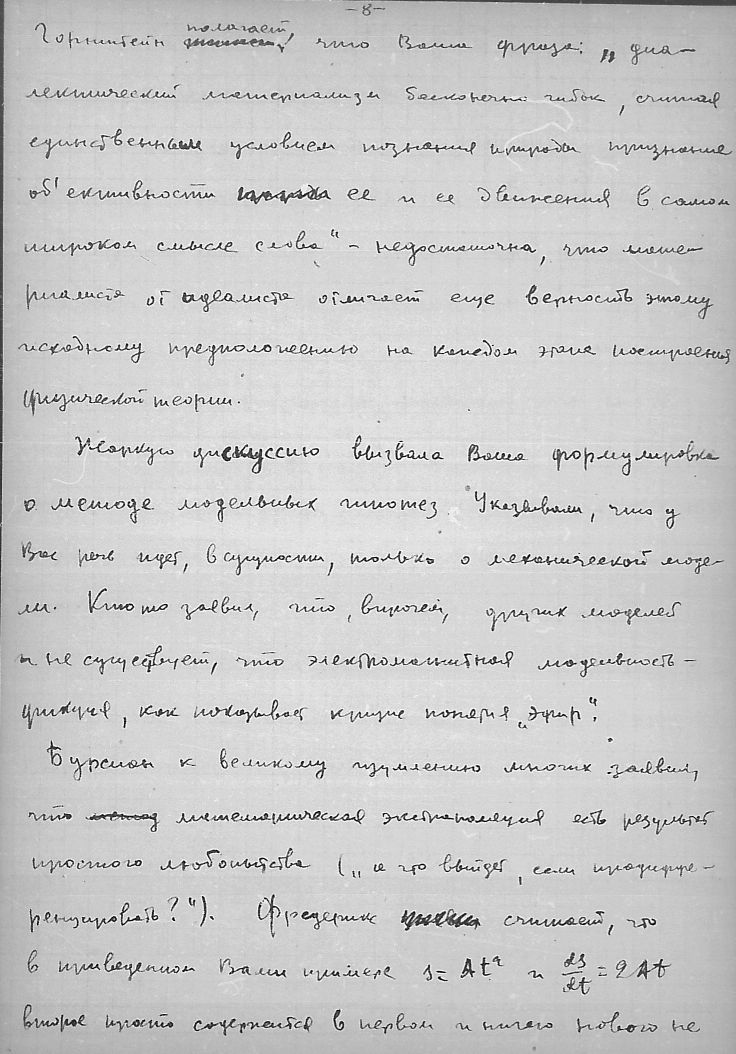 -8-
полагает
Горнштейн что Ваша фраза: „диа-
лектический материализм бесконечно гибок, считая
единственным условием познания природы признание
об'ективности ее и ее движения в самом
широком смысле слова" - недостаточна, что мате-
риалиста от идеалиста отличает еще верность этому
исходному предположению на каждом этапе построения
физической теории.
Жаркую дискуссию вызвала Ваша формулировка
о методе модельных гипотез. Указывали, что у
Вас речь идет, в сущности, только о механической моде-
ли. Кто то заявил, что, впрочем, других моделей
и не существует, что электромагнитная модельность -
фикция, как показывает кризис понятия „эфир".
Бурсиан к великому изумлению многих заявил,
что метод математическая экстраполяция есть результат
простого любопытства („а что выйдет, если продиффе-
ренцировать?"). Фредерикс считает, что
в приведенном Вами примере s = At² и ds/dt = 2At
второе просто содержится в первом и ничего нового не